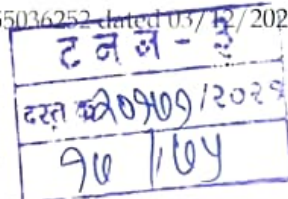 55036252 dated 03/12/202
ट न न - ३
दस्त क्र २०१७१/२०२१
१७ / ७५